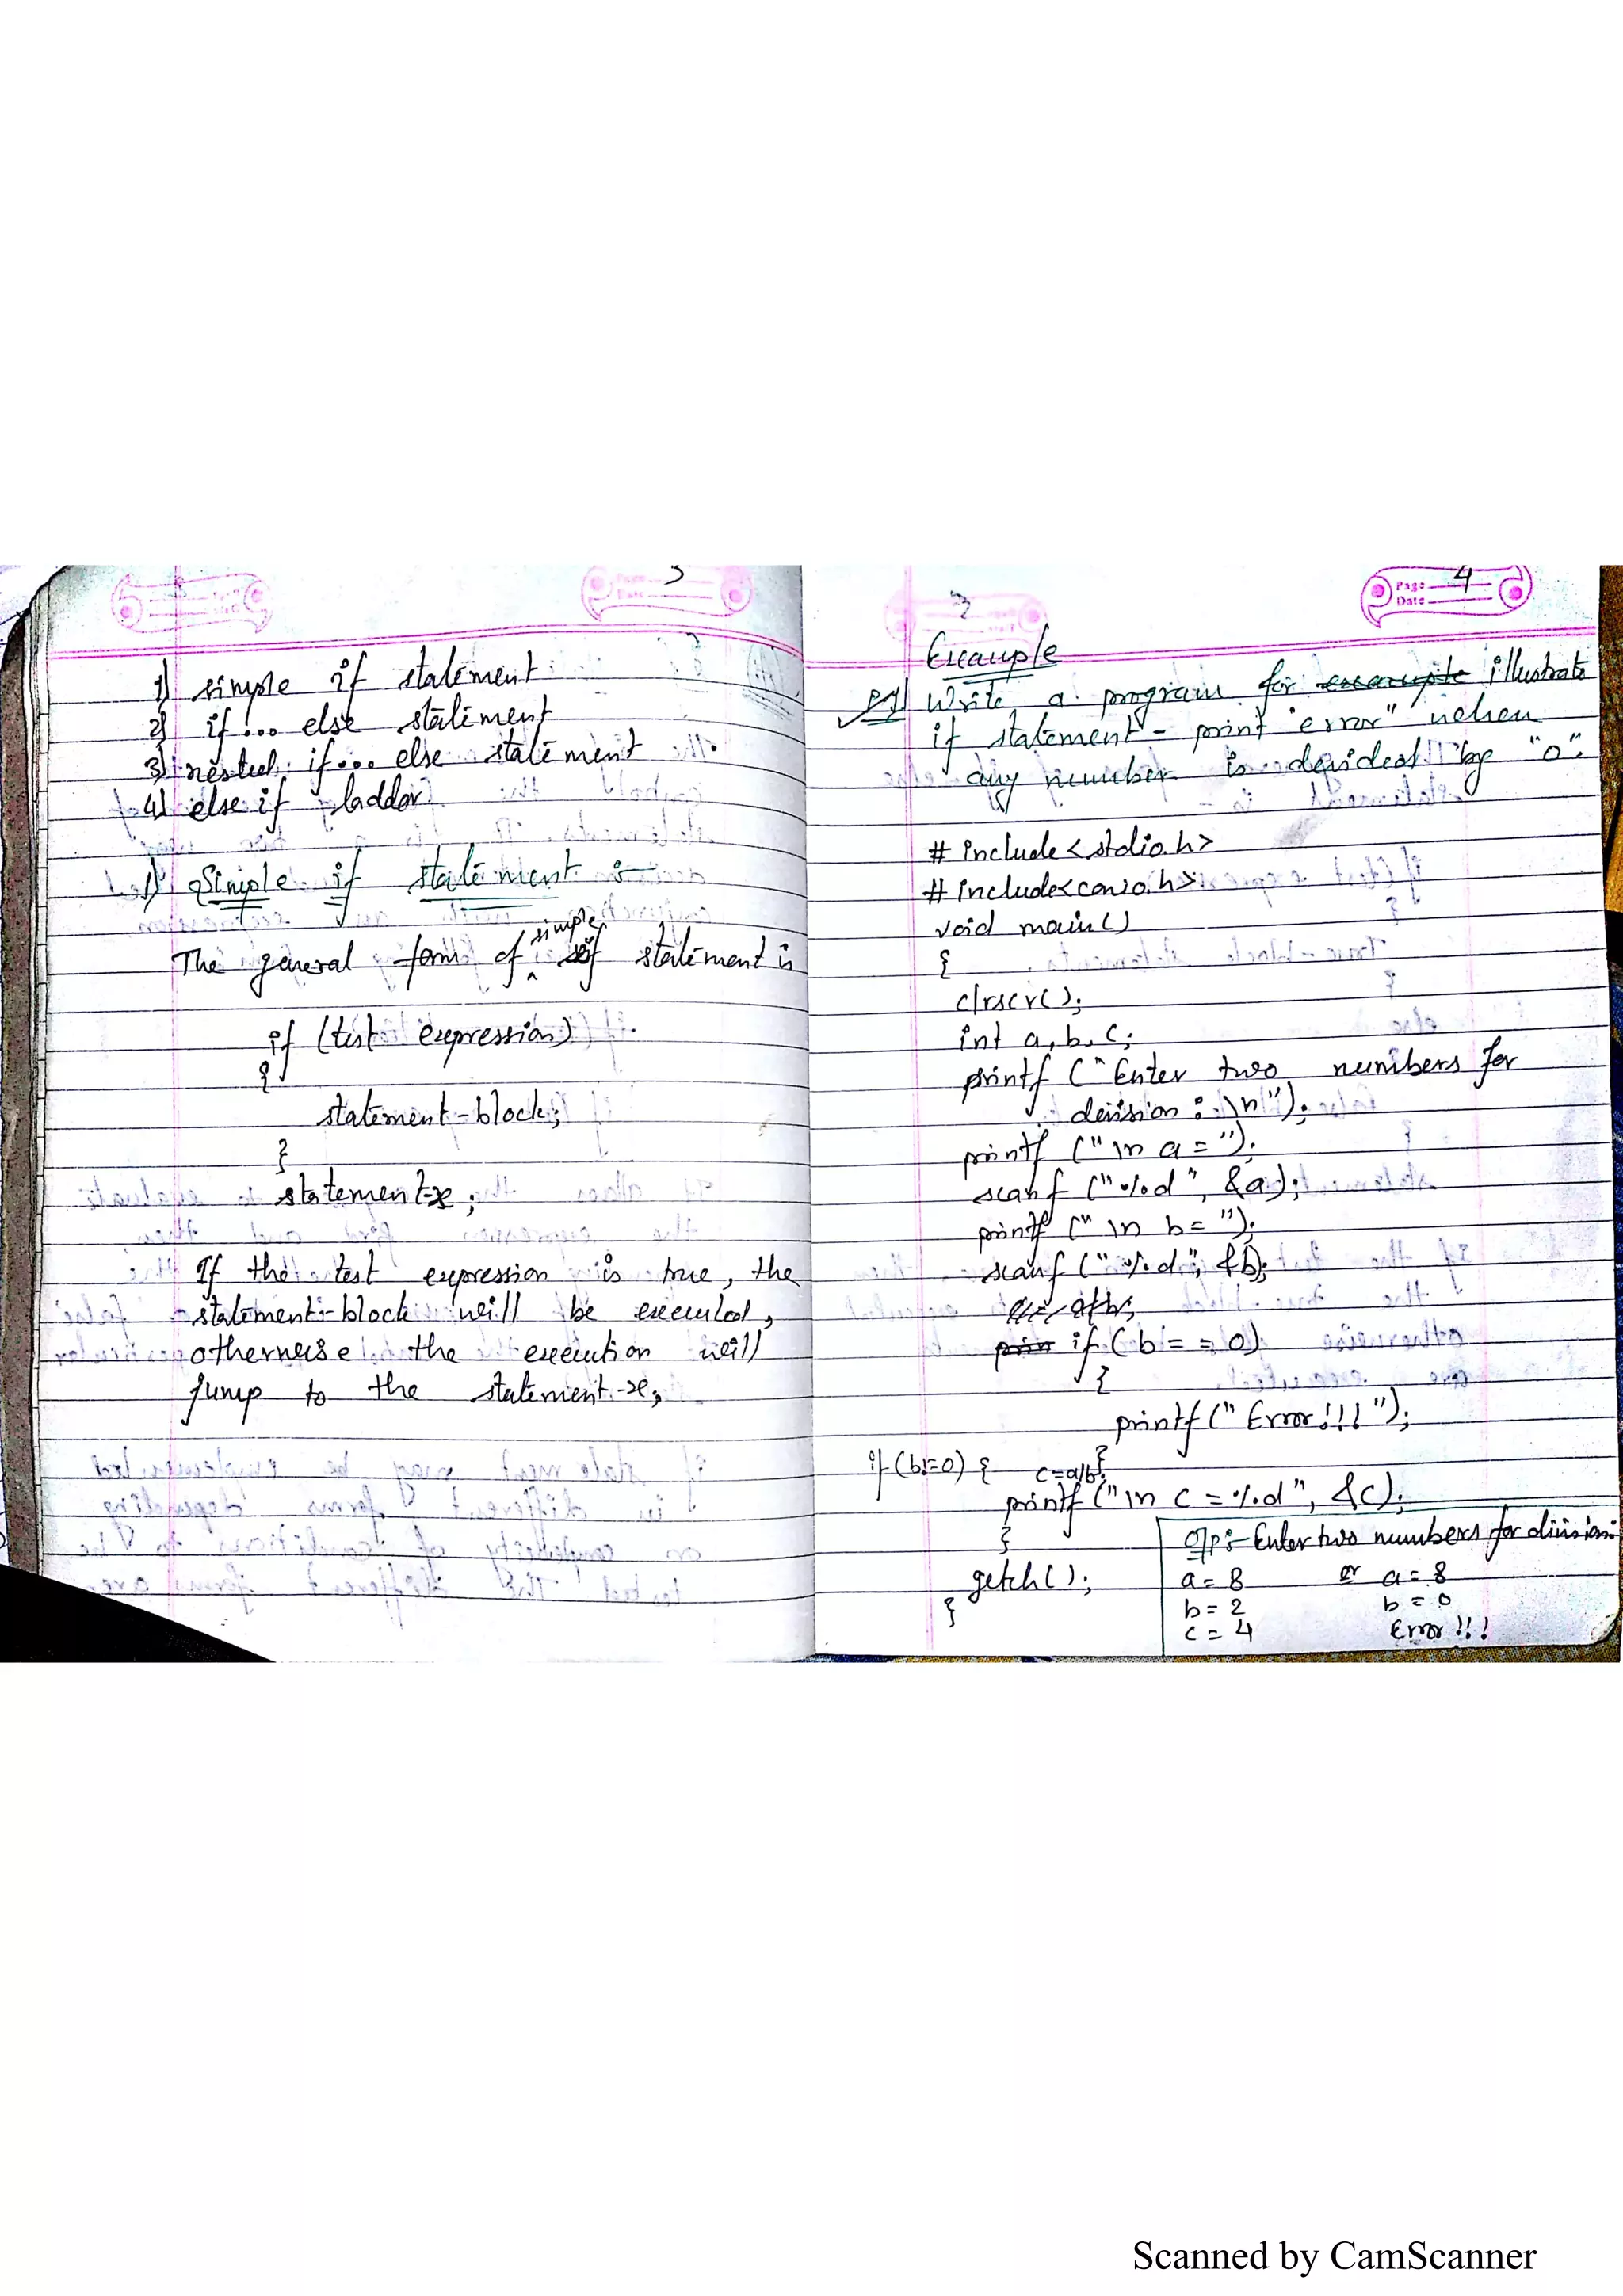 3
1) simple if statement
2) if... else statement
3) nested if... else statement
4) else if laddar
1) Simple if statement :-
simple
The general form of if statement is
if (test expression)
{
statement-block;
}
statement-x;
If the test expression is true, the
statement-block will be executed,
otherwise the execution will
jump to the statement-x;
Page 4
Date
Example
P1) Write a program for illustrate
if statement - print "error" when
any number is devided by "0".
# include <stdio.h>
# include<conio.h>
void main()
{
clrscr();
int a, b, c;
printf ("Enter two numbers for
devision : \n");
printf ("\n a = ");
scanf ("%d", &a);
printf ("\n b = ");
scanf ("%d", &b);
if (b = = 0)
{
printf (" Error!!! ");
}
if (b!=0) { c=a/b;
printf ("\n c = %d", &c);
}
getch();
}
O/p:- Enter two numbers for division
a = 8 or a = 8
b = 2 b = 0
c = 4 Error !!!
Scanned by CamScanner